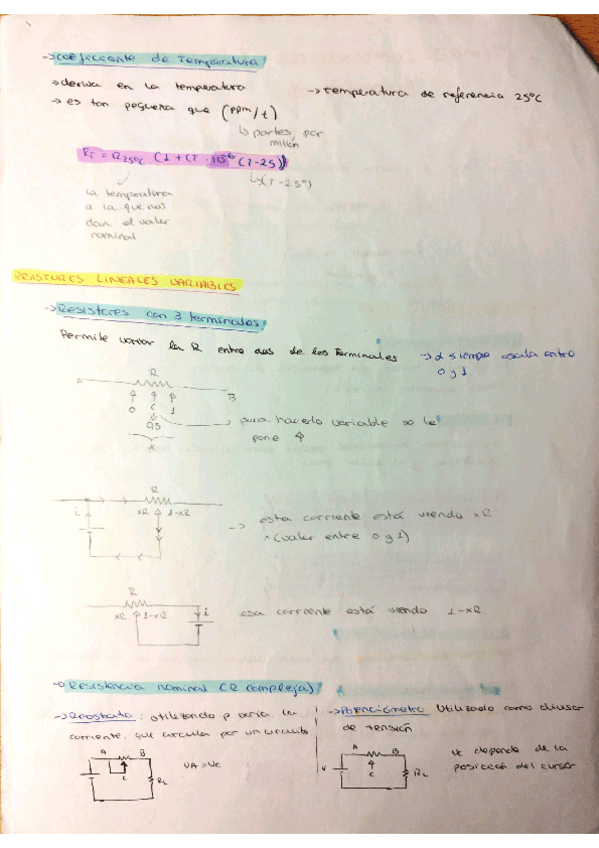 → coeficiente de Temperatura
→ deriva en la temperatura → temperatura de referencia 25ºC
→ es tan pequeña que (ppm/t)
↳ partes por
millón
RT = R25ºC (1+CT · 10⁻⁶ (T-25))
↳ (T-25º)
la temperatura
a la que nos
dan el valor
nominal
RESISTORES LINEALES VARIABLES
→ Resistores con 3 terminales
Permite variar la R entre dos de los Terminales → α siempre escala entre
0 y 1.
A R B
0 C 1
0,5
x
→ para hacerlo variable se le
pone ↑
R
i xR 1-xR
→ esta corriente está viendo xR
x (valor entre 0 y 1)
R
xR 1-xR i
esa corriente está viendo 1-xR
→ Resistencia nominal (R compleja)
→ Reostato: utilizando p varia la
corriente que circula por un circuito
A B
C
RL
VA = VC
→ Potenciómetro Utilizado como divisor
de tensión
A B
V C
RL
depende de la
posición del cursor